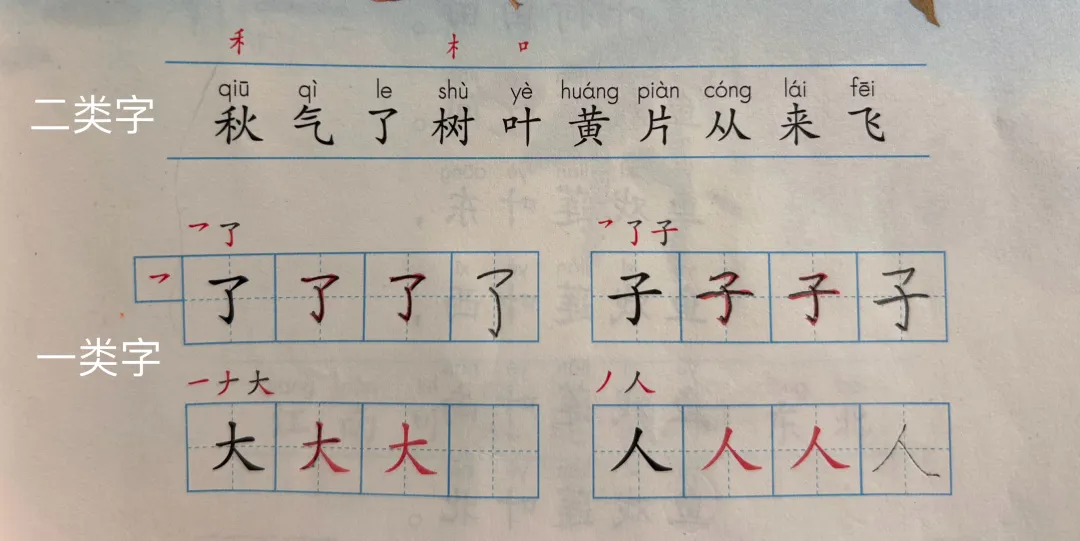 禾 木 口
qiū qì le shù yè huáng piàn cóng lái fēi
二类字 秋 气 了 树 叶 黄 片 从 来 飞
㇇ 了 ㇇ 了 子
㇇ 了 了 了 了 子 子 子 子
一类字
一 ナ 大 丿 人
大 大 大 人 人 人 人